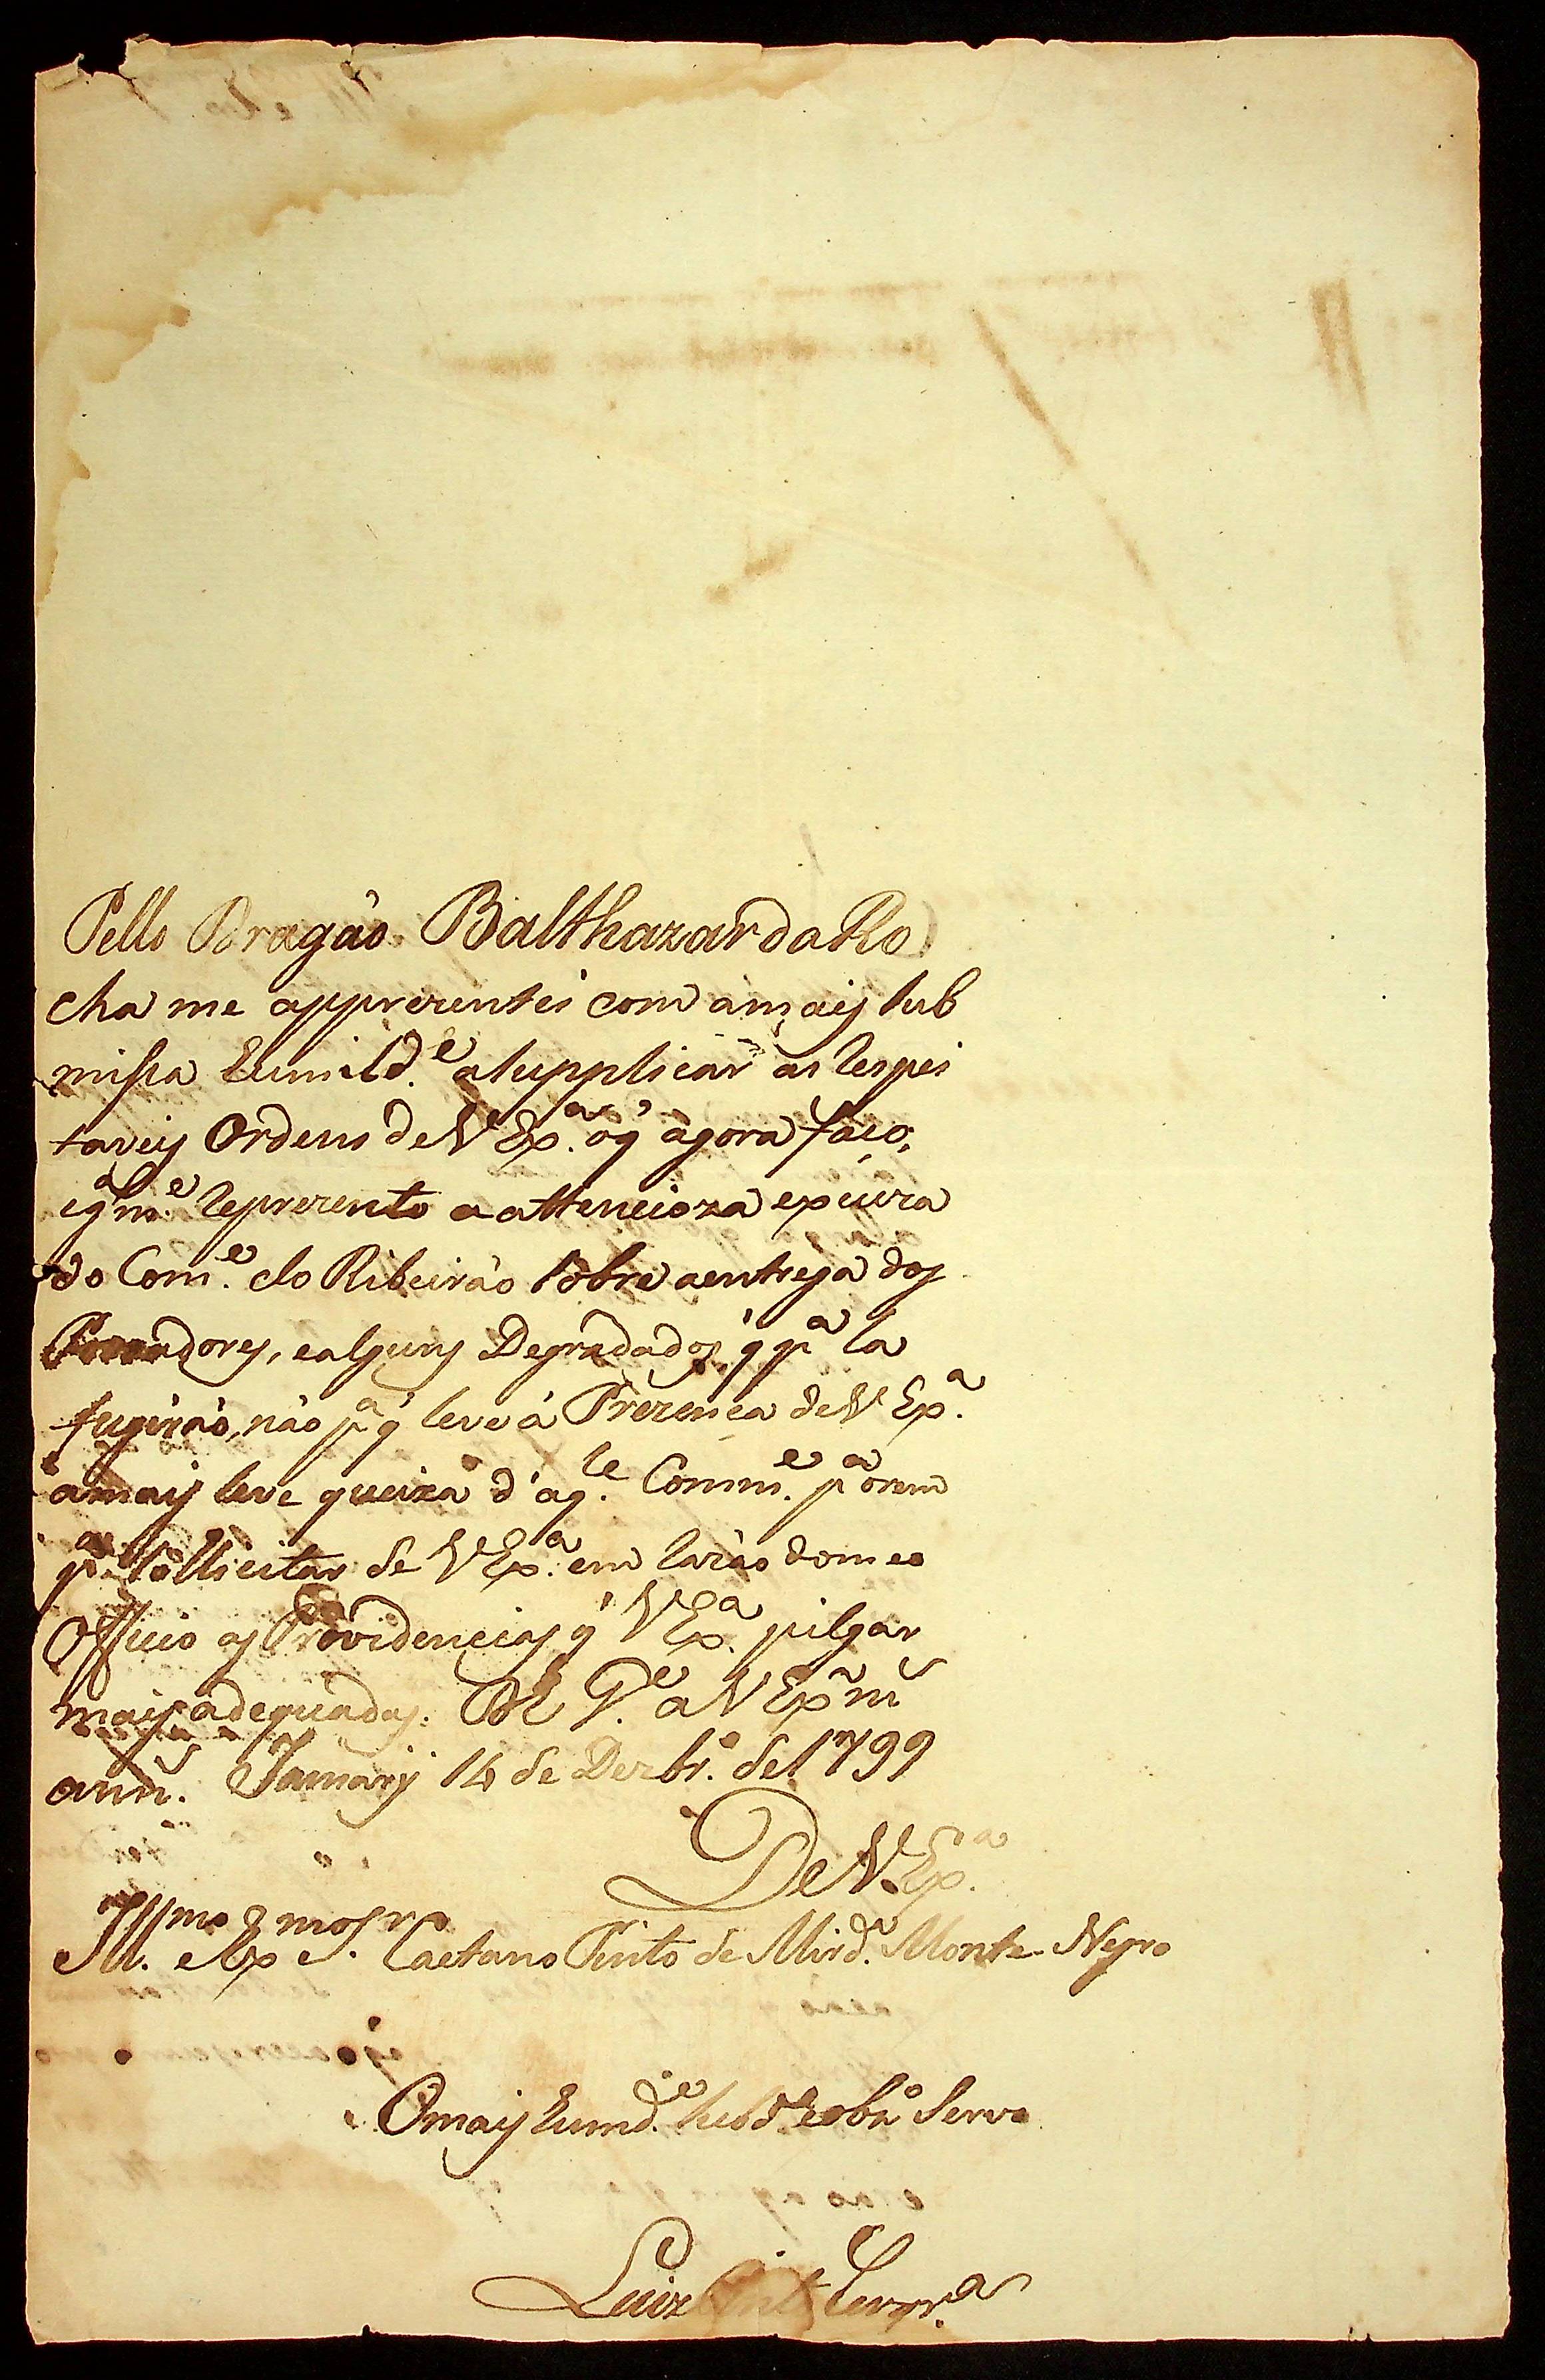 Pello Dragão Balthazar da Ro
cha me apprezentei com amais sub
missa Eumild.e asupplicar as respei
taveis Ordens de V Ex.a oq' agora faço,
eg.m.e reprezento a attencioza expciura
do Com.e do Ribeirão sobre aentrega dos
ealguns Degradados q' p.a la
fugirão, não p.a q' leve á Prezença de V Ex.a
amais leve queixa d'aq.le Comm.e p.a orem
p.a sollicitar de V Ex.a em razão domeo
Officio as Providencias q' V Ex.a julgar
mais adequadas. D.s G.e a V Ex.a m.s
ann.s Jamary 14 de Dezbr.o de 1799
De V. Ex.a
Ill.mo e Ex.mo S.r Caetano Pinto de Mird.a Monte Negro
Omais Eumd.e subd.o eobr.o Servo
Luiz Ant.o